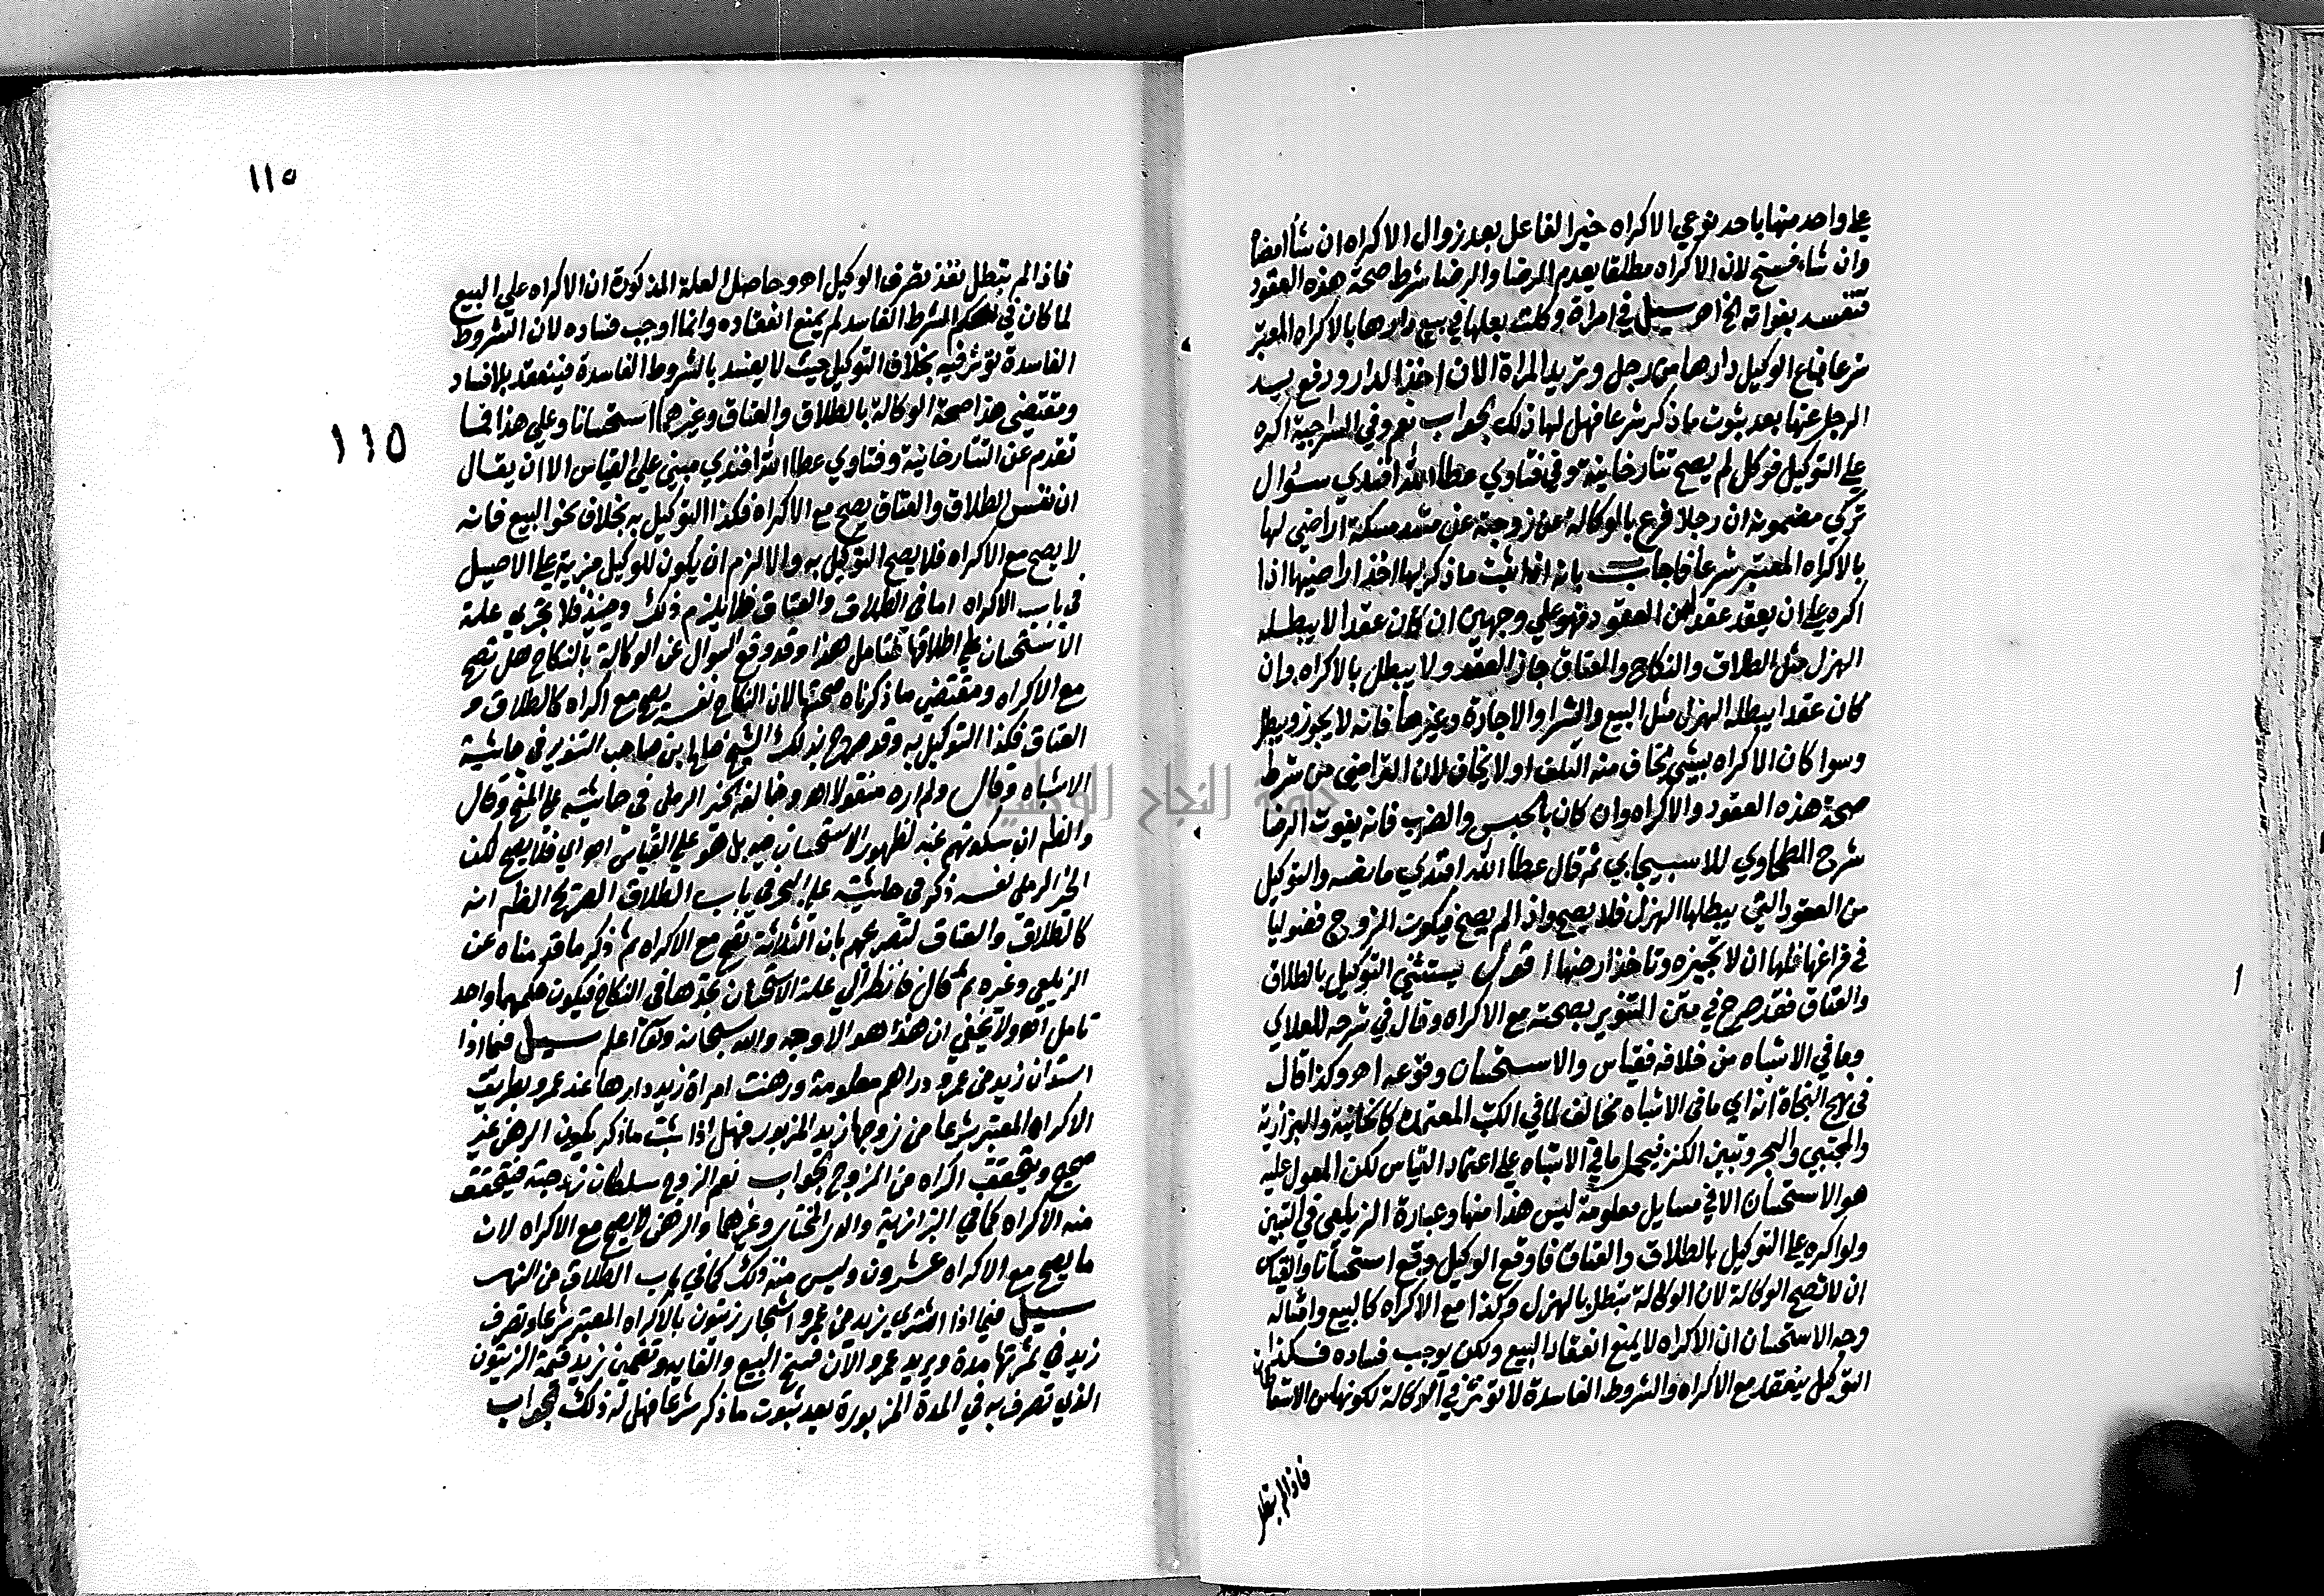 علي واحد منها باحد نوعي الاكراه خير الفاعل بعد زوال الاكراه ان شا امضا
وان شاء فسخ لان الاكراه مطلقا يعدم الرضا والرضا شرط صحة هذه العقود
فتفسد بفواته الخ اهـ سيل في امراة وكلت بعلها في بيع دارها بالاكراه المعتبر
شرعا فباع الوكيل دارها من رجل وتريد المراة الان اخذ الدار ورفع يد
الرجل عنها بعد ثبوت ما ذكر شرعا فهل لها ذلك الجواب نعم وفي السراجية اكره
علي التوكيل فوكل لم يصح تتارخانية وفي فتاوي عطا الله افندي سؤال
تركي مضمونه ان رجلا فرغ بالوكالة عن زوجته عن مشد مسكة اراضي لها
بالاكراه المعتبر شرعا فاجاب بانه اذا ثبت ما ذكر لها اخذ اراضيها اذا
اكره علي ان يعقد عقدا من العقود فهو علي وجهين ان كان عقدا لا يبطله
الهزل مثل الطلاق والنكاح والعتاق جاز العقد ولا يبطل بالاكراه وان
كان عقدا يبطله الهزل مثل البيع والشرا والاجارة وغيرها فانه لا يجوز ويبطل
وسوا كان الاكراه بشي يخاف منه التلف او لا يخاف لان التراضي من شرط
صحة هذه العقود والاكراه وان كان بالحبس والضرب فانه يفوت الرضا
شرح الطحاوي للاسبيجابي ثم قال عطا الله افندي ما نصه والتوكيل
من العقود التي يبطلها الهزل فلا يصح واذا لم يصح فيكون الزوج فضوليا
في فراغها فلها ان لا تجيزه وتاخذ ارضها اقول يستثني التوكيل بالطلاق
والعتاق فقد صرح في متن التنوير بصحته مع الاكراه وقال في شرحه للعلاي
وما في الاشباه من خلافه فقياس والاستحسان وقوعه اهـ وكذا قال
في نهج النجاة انه اي ما في الاشباه مخالف لما في الكتب المعتمدة كالخانية والبزازية
والمجتبي والبحر وتبين الكنز فيحمل ما في الاشباه علي اعتماد القياس لكن المعول عليه
هو الاستحسان الا في مسايل معلومة ليس هذا منها وعبارة الزيلعي في التبين
ولو اكره علي التوكيل بالطلاق والعتاق فاوقع الوكيل وقع استحسانا والقياس
ان لا تصح الوكالة لان الوكالة تبطل بالهزل وكذا مع الاكراه كالبيع وامثاله
وجه الاستحسان ان الاكراه لا يمنع انعقاد البيع ولكن يوجب فساده فكذا
التوكيل ينعقد مع الاكراه والشروط الفاسدة لا تؤثر في الوكالة لكونها من الاسقاطات
فاذا لم تبطل
١١٥
١١٥
فاذا لم تبطل نفذ تصرف الوكيل اهـ وحاصل العلة المذكورة ان الاكراه علي البيع
لما كان في حكم الشرط الفاسد لم يمنع انعقاده وانما اوجب فساده لان الشروط
الفاسدة تؤثر فيه بخلاف التوكيل حيث لا يفسد بالشروط الفاسدة فينعقد بلا فساد
ومقتضي هذا صحة الوكالة بالطلاق والعتاق وغيرهما استحسانا وعلي هذا فما
تقدم عن التتارخانية وفتاوي عطا الله افندي مبني علي القياس الا ان يقال
ان نفس الطلاق والعتاق يصح مع الاكراه فكذا التوكيل به بخلاف نحو البيع فانه
لا يصح مع الاكراه فلا يصح التوكيل به والا لزم ان يكون للوكيل مزية علي الاصيل
في باب الاكراه اما في الطلاق والعتاق فلا يلزم ذلك وحينئذ فلا تجري علة
الاستحسان علي اطلاقها فتامل هذا وقد وقع السوال عن الوكالة بالنكاح هل تصح
مع الاكراه ومقتضي ما ذكرناه صحتها لان النكاح نفسه يصح مع اكراه كالطلاق و
العتاق فكذا التوكيل به وقد صرح بذلك الشيخ صالح ابن صاحب التنوير في حاشية
الاشباه وقال ولم اره منقولا اهـ وخالفه الخير الرملي في حاشيته علي المنح وقال
والظم ان سكوتهم عنه لظهور الاستحسان فيه بل هو علي القياس اهـ اي فلا يصح لكن
الخير الرملي نفسه ذكر في حاشيته علي البحر في باب الطلاق الصريح الظم انه
كالطلاق والعتاق لتصريحهم بان الثلاثة تصح مع الاكراه ثم ذكر ما قدمناه عن
الزيلعي وغيره ثم قال فانظر الي علة الاستحسان تجدها في النكاح فيكون حكمهما واحد
تامل اهـ ولا يخفي ان هذا هو الاوجه والله سبحانه وتعا اعلم سيل فيما اذا
استدان زيد من عمرو دراهم معلومة ورهنت امراة زيد دارها عند عمرو بطريق
الاكراه المعتبر شرعا من زوجها زيد المزبور فهل اذا ثبت ما ذكر يكون الرهن غير
صحيح ويتحقق اكراه من الزوج الجواب نعم الزوج سلطان زوجته فيتحقق
منه الاكراه كما في البزازية والدر المختار وغيرهما والرهن لا يصح مع الاكراه لان
ما يصح مع الاكراه عشرون وليس منه ذلك كما في باب الطلاق من النهر
سيل فيما اذا اشتري زيد من عمرو اشجار زيتون بالاكراه المعتبر شرعا وتصرف
زيد في ثمرتها مدة ويريد عمرو الان فسخ البيع والفايد وتضمين زيد قيمة الزيتون
الذي تصرف به في المدة المزبورة بعد ثبوت ما ذكر شرعا فهل له ذلك الجواب
جامعة النجاح الوطنية